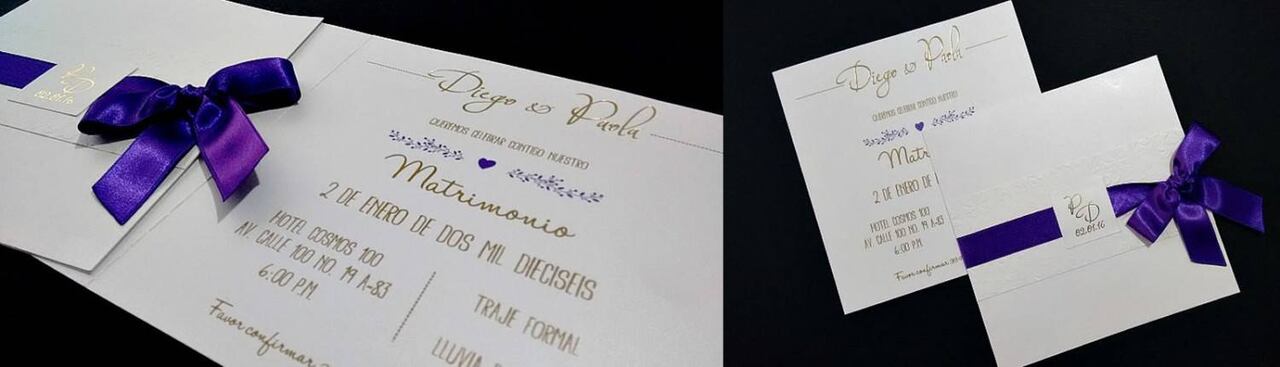 PD
02.01.16
Diego & Paola
QUEREMOS CELEBRAR CONTIGO NUESTRO
Matrimonio
2 DE ENERO DE DOS MIL DIECISEIS
HOTEL COSMOS 100
AV. CALLE 100 NO. 19 A-83
6:00 P.M.
TRAJE FORMAL
LLUVIA
Favor confirmar
Diego & Paola
QUEREMOS CELEBRAR CONTIGO NUESTRO
Matr
2 DE ENERO DE
HOTEL COSMOS 100
AV. CALLE 100 NO. 19 A-83
6:00 P.M.
Favor confirmar
PD
02.01.16